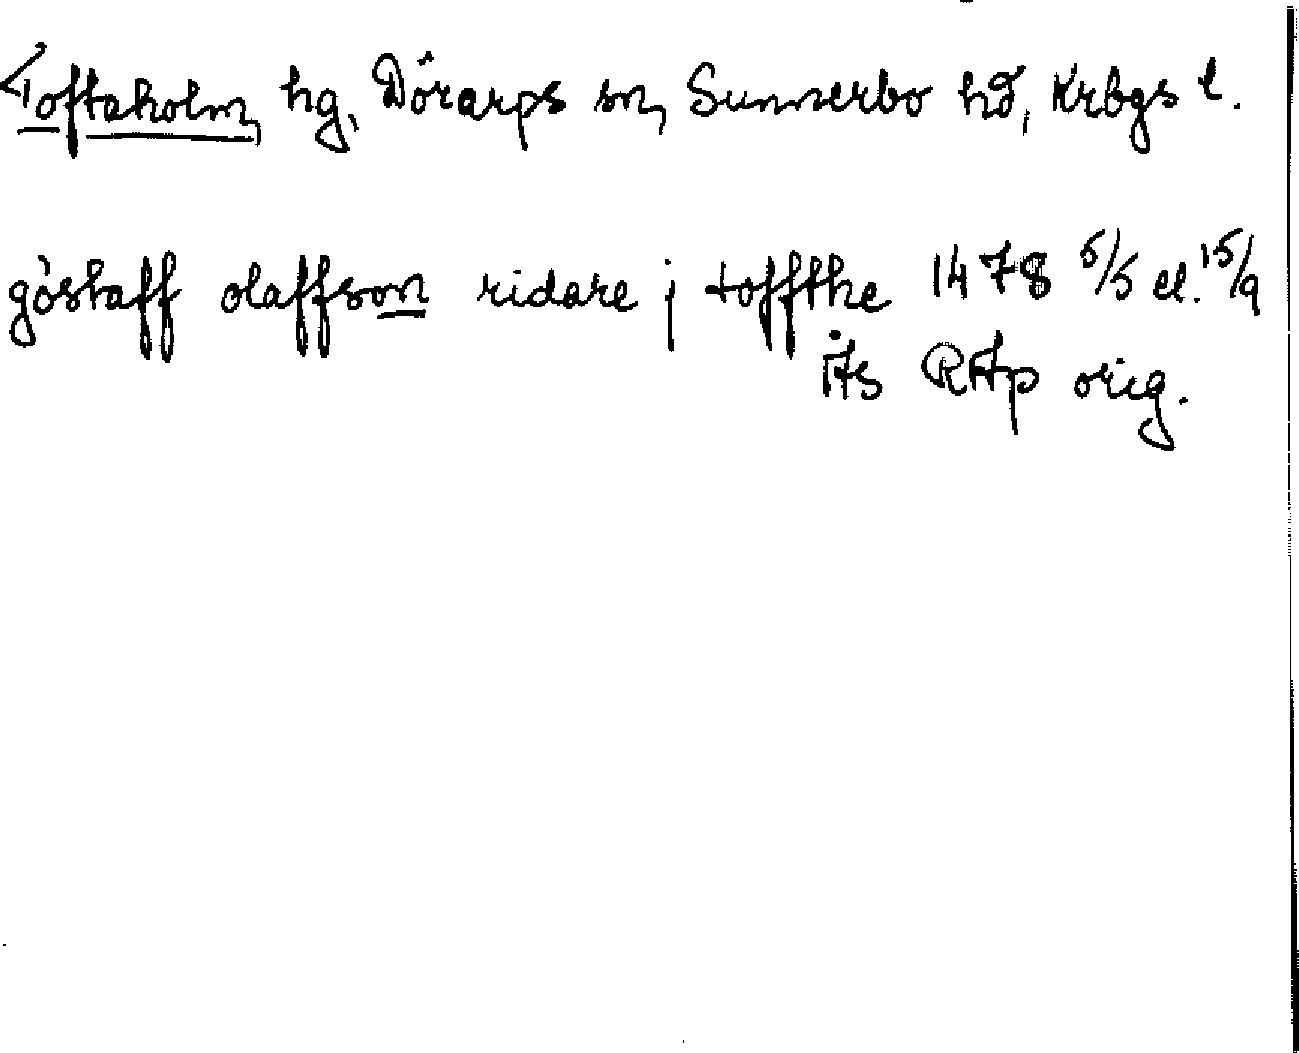 Toftaholm, hg, Dörarps sn, Sunnerbo hd, Krbgs l.
göstaff olaffson ridare j toffthe 1478 5/5 el. 15/9
Ås RAp orig.